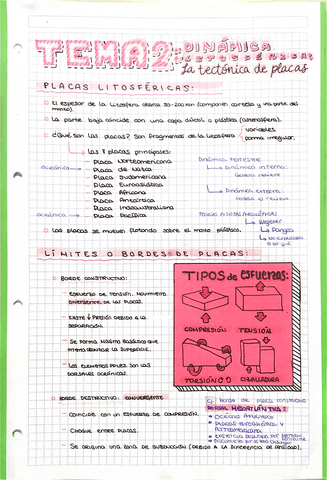 TEMA 2: DINÁMICA
LITOSFÉRICA:
La tectónica de placas
PLACAS LITOSFÉRICAS:
El espesor de la litosfera oscila 50-200 km (componen corteza y una parte del
manto).
La parte baja coincide con una capa dúctil o plástica (astenosfera).
¿Qué son las placas? Son fragmentos de la litosfera
variables
forma irregular.
Las 8 placas principales:
oceánica
Placa Norteamericana
Placa de Nazca
Placa Sudamericana
Placa Euroasiática
Placa Africana
Placa Antártica
Placa Indoaustraliana
oceánica
Placa Pacífica
Dinámica terrestre
Dinámica interna:
genera relieve
Dinámica externa:
Wegener
Pangea
Las placas se mueven flotando sobre el manto plástico.
LÍMITES O BORDES DE PLACAS:
BORDE CONSTRUCTIVO:
Esfuerzo de tensión, movimiento
divergente de las placas.
Existe ↓ presión debido a la
separación.
Se forma magma basáltico que
intenta rellenar la superficie.
Los ejemplos reales son las
dorsales oceánicas.
TIPOS de esfuerzos:
COMPRESIÓN
TENSIÓN
TORSIÓN
CIZALLADURA
BORDE DESTRUCTIVO: CONVERGENTE
Coincide con un esfuerzo de compresión.
Choque entre placas.
Se origina una zona de subducción (debido a la diferencia de densidad).
borde de placa constructivo
DORSAL MESOATLÁNTICA:
Océano Atlántico
Placas Euroasiática y
Norteamericana